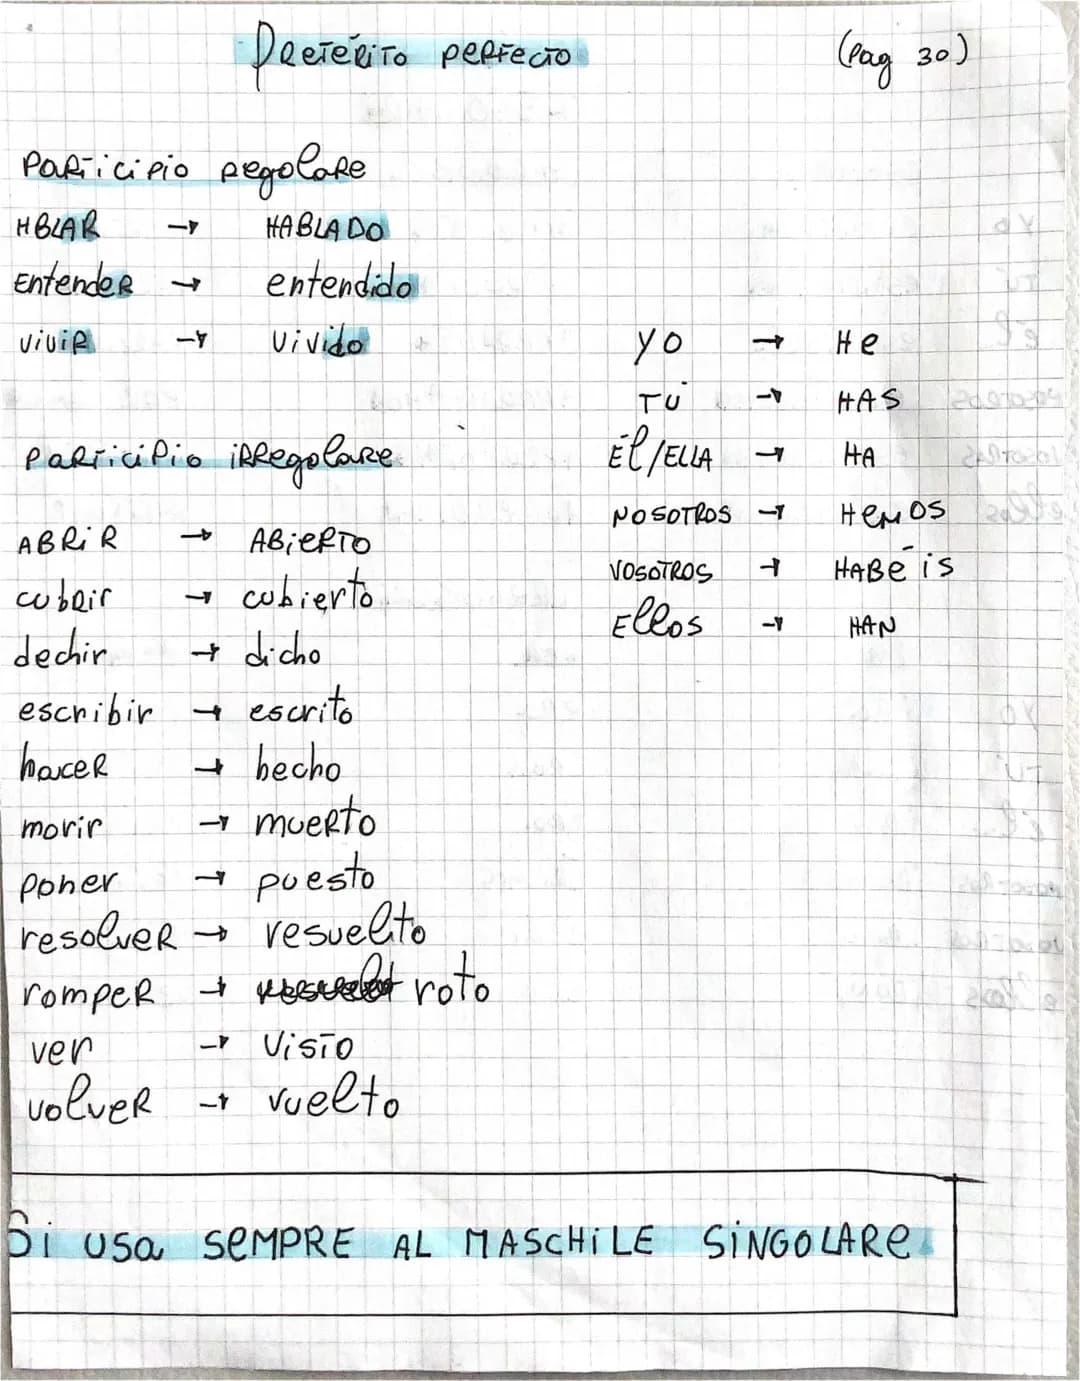 PRETÉRITO PERFECTO (Pag 30)
PARTICIPIO REGOLARE
HBLAR → HABLADO
ENTENDER → entendido
VIVIR → Vivido
PARTICIPIO IRREGOLARE
ABRIR → ABIERTO
cubrir → cubierto
dechir → dicho
escribir → escrito
hacer → hecho
morir → muerto
poner → puesto
resolver → resuelto
romper → roto
ver → Visto
volver → vuelto
YO → He
TÚ → HAS
ÉL/ELLA → HA
NOSOTROS → HEMOS
VOSOTROS → HABÉIS
Ellos → HAN
Si usa SEMPRE AL MASCHILE SINGOLARE.